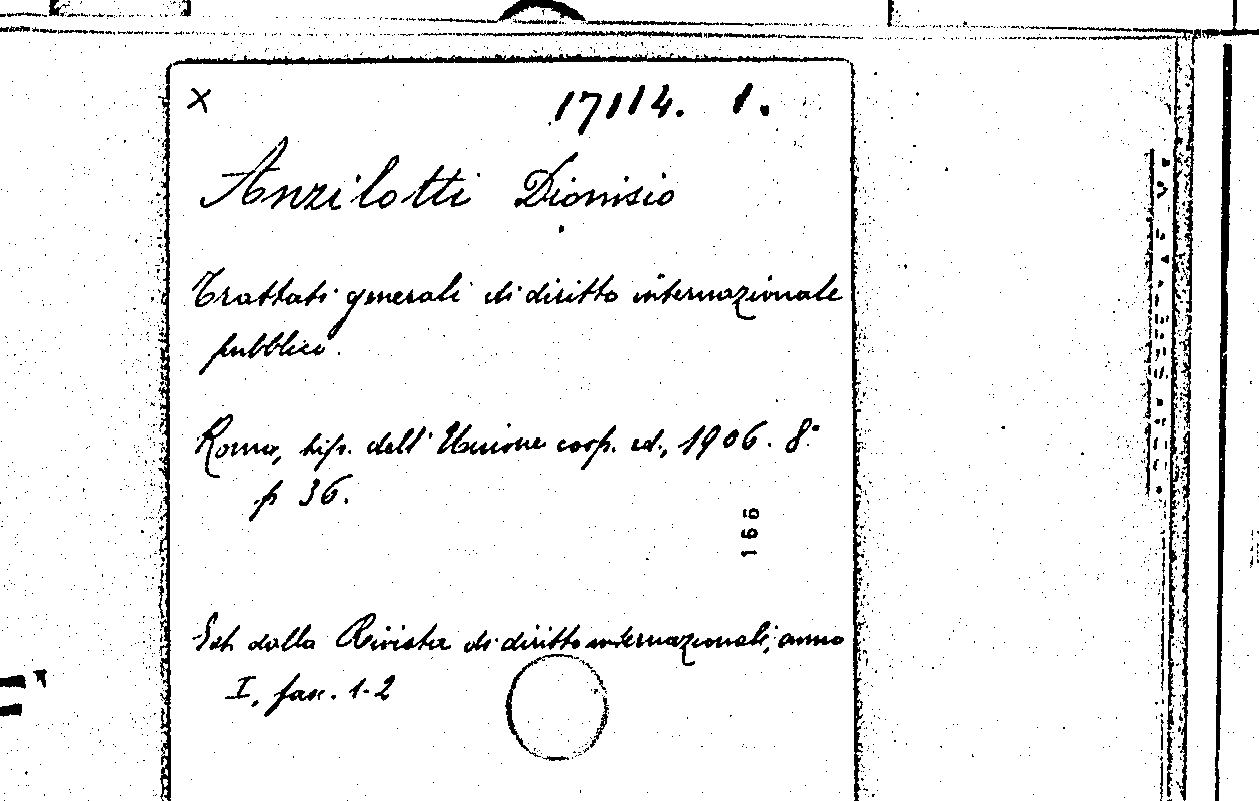 X 17114. 1.
Anzilotti Dionisio
Trattati generali di diritto internazionale
pubblico.
Roma, tip. dell' Unione coop. ed., 1906. 8°
p 36.
166
Est. dalla Rivista di diritto internazionale, anno
I, fasc. 1-2